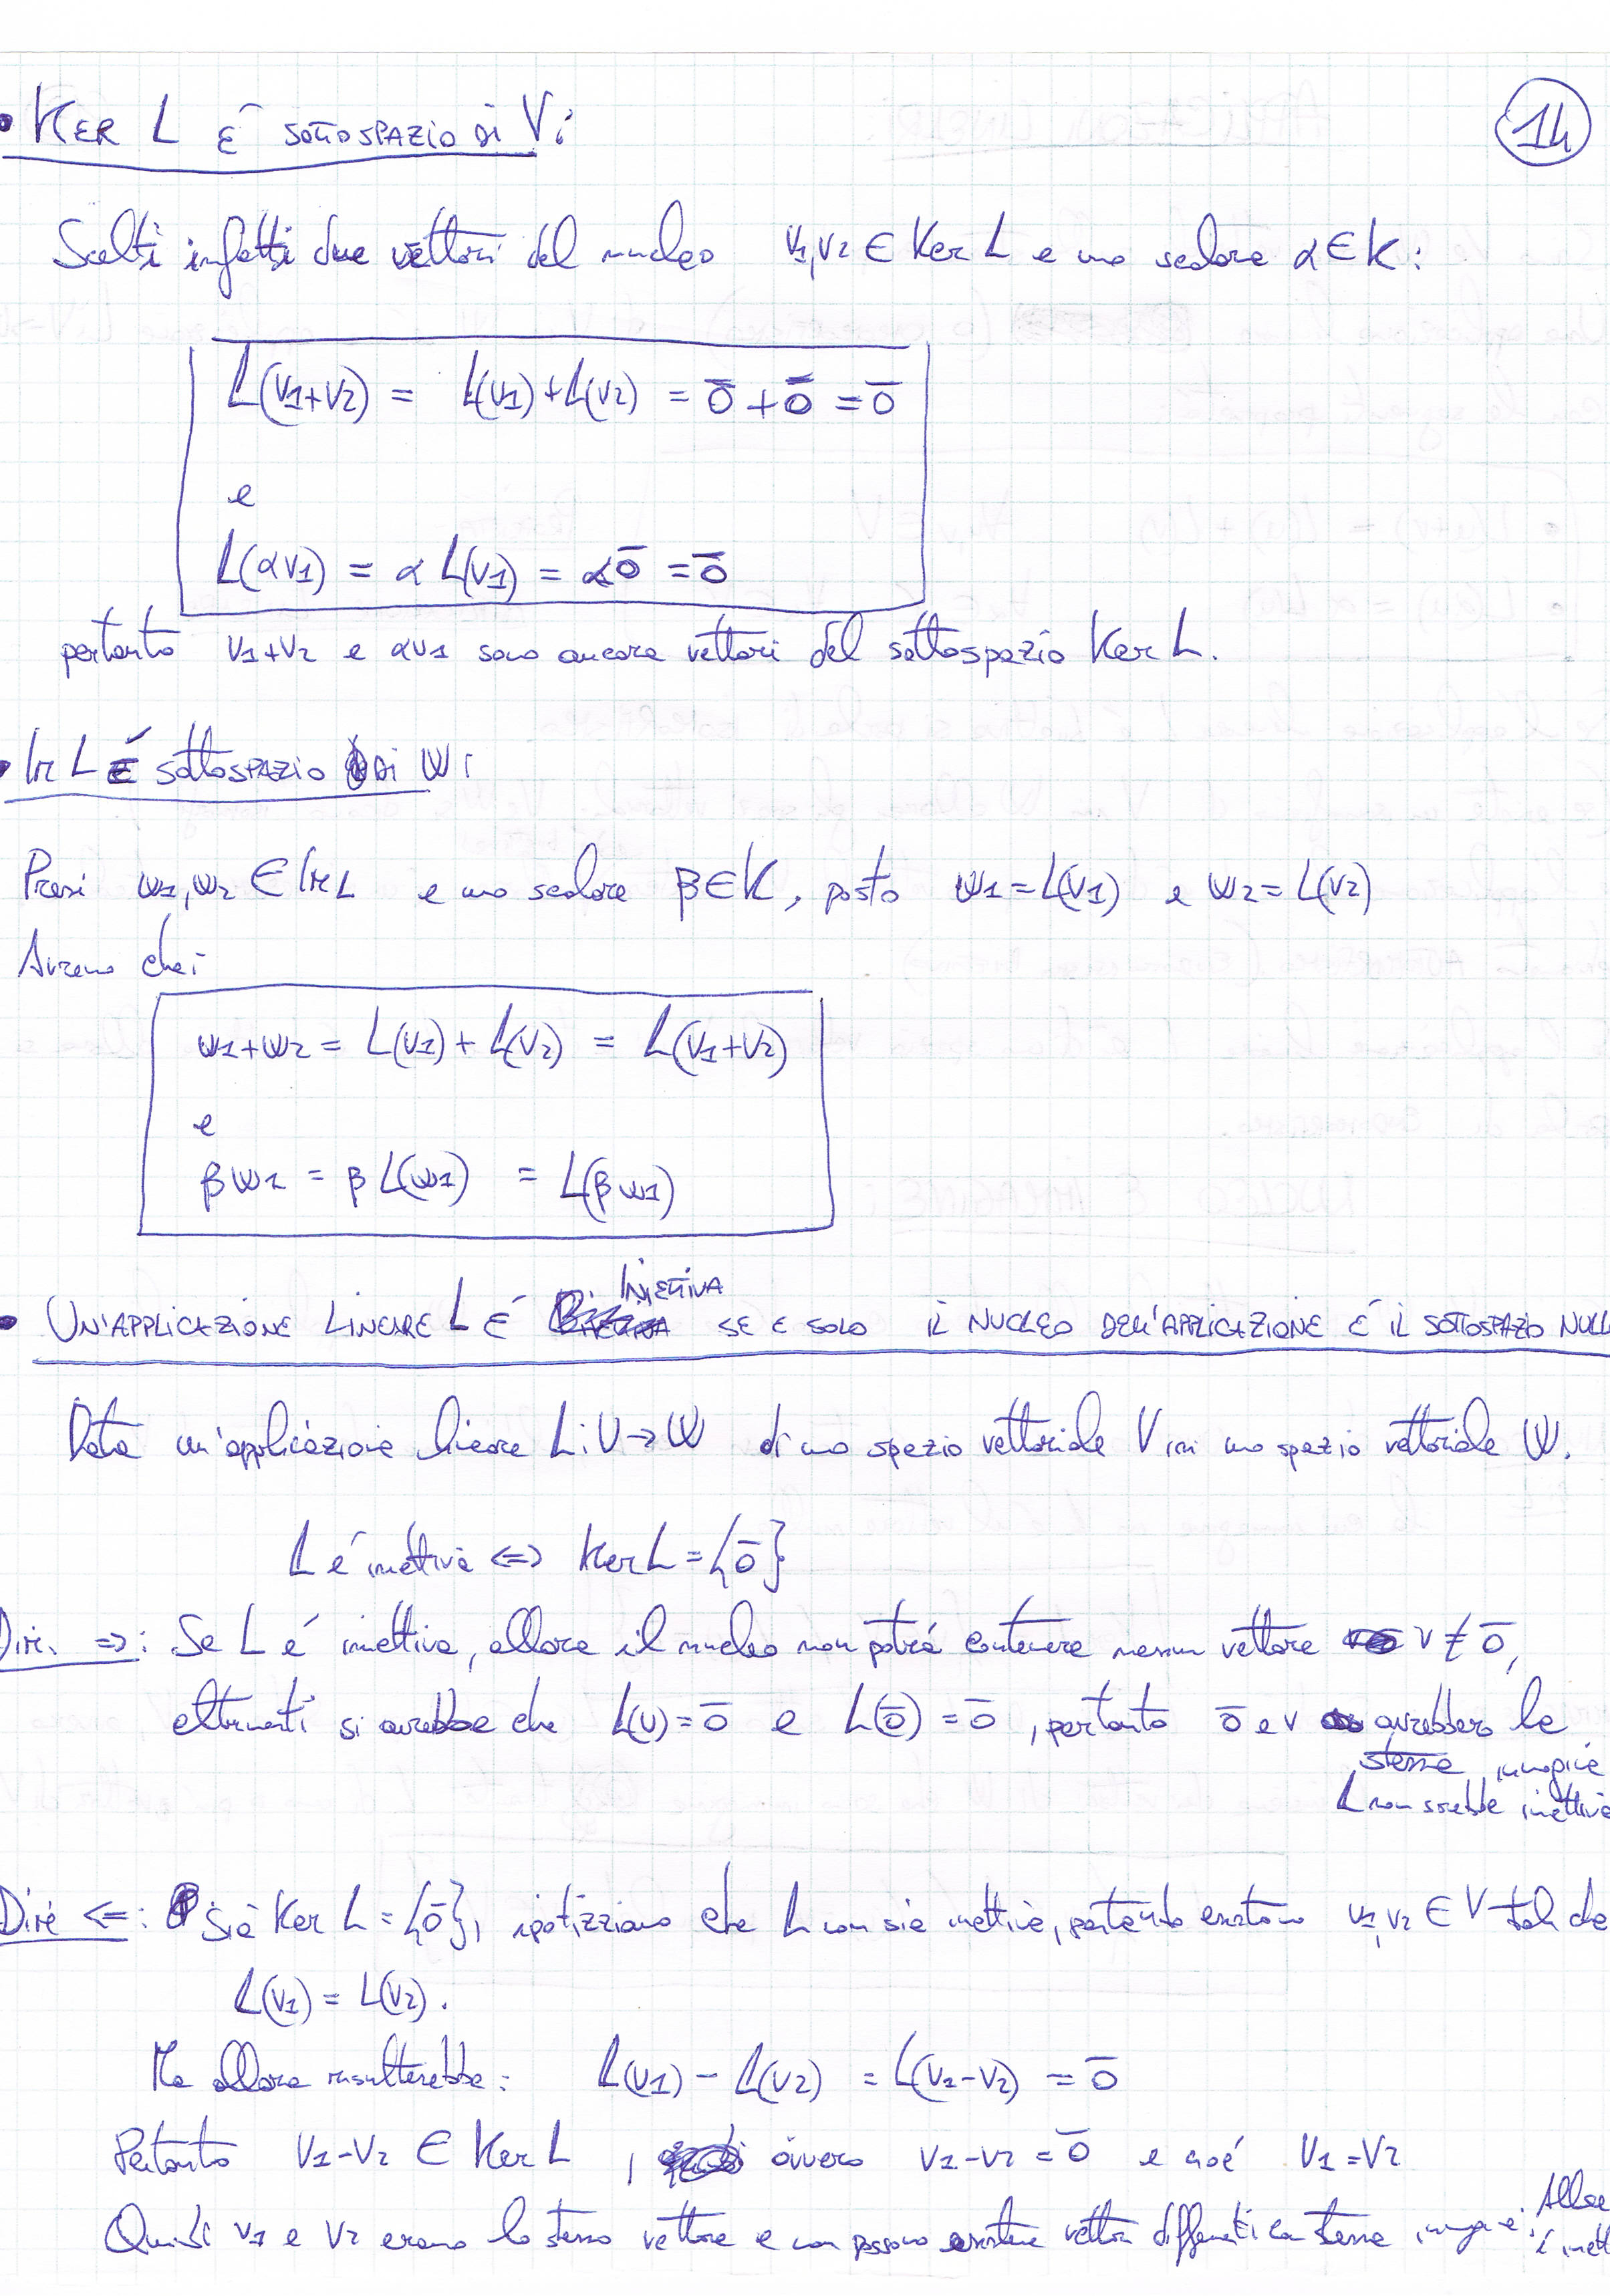 • KER L É SOTTOSPAZIO DI V:
14
Scelti infatti due vettori del nucleo v1,v2 ∈ Ker L e uno scalare α ∈ K:
L(v1+v2) = L(v1)+L(v2) = ō + ō = ō
e
L(αv1) = α L(v1) = αō = ō
pertanto v1+v2 e αv1 sono ancora vettori del sottospazio Ker L.
• Im L É SOTTOSPAZIO DI W:
Presi w1,w2 ∈ Im L e uno scalare β ∈ K, posto w1 = L(v1) e w2 = L(v2)
Avremo che:
w1+w2 = L(v1) + L(v2) = L(v1+v2)
e
βw1 = β L(w1) = L(βw1)
INIETTIVA
• UN'APPLICAZIONE LINEARE L É SE E SOLO IL NUCLEO DELL'APPLICAZIONE É IL SOTTOSPAZIO NULL
Data un'applicazione lineare L: V → W di uno spazio vettoriale V in uno spazio vettoriale W.
L é iniettiva ⇔ Ker L = {ō}
Dim. ⇒: Se L é iniettiva, allora il nucleo non potrá contenere nessun vettore v ≠ ō,
altrimenti si avrebbe che L(v) = ō e L(ō) = ō, pertanto ō e v avrebbero la
stessa immagine
L non sarebbe iniettiva
Dim ⇐: Sia Ker L = {ō}, ipotizziamo che L non sia iniettiva, pertanto esistono v1,v2 ∈ V tali che
L(v1) = L(v2).
Ma allora risulterebbe: L(v1) - L(v2) = L(v1-v2) = ō
Pertanto v1-v2 ∈ Ker L, ovvero v1-v2 = ō e cioé v1 = v2
Quindi v1 e v2 erano lo stesso vettore e non possono esistere vettori differenti con stessa immagine. Allora
é iniett